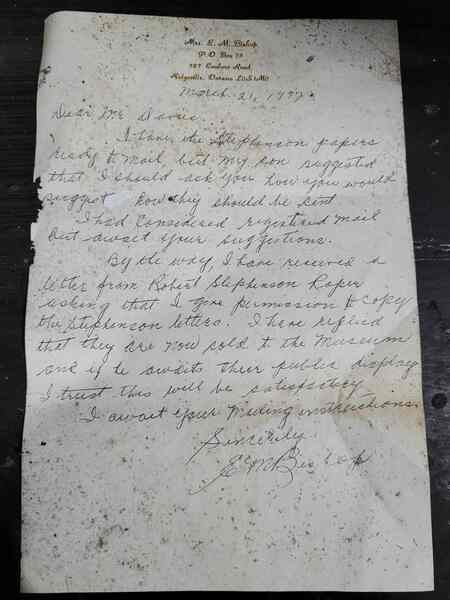 Mrs. E. M. Bishop
P. O. Box 79
Road,
Ridgeville, Ontario L0S 1M0
March 21, 1997
Dear Mr Davis
I have the Stephenson papers
ready to mail, but my son suggested
that I should ask you how you would
suggest how they should be sent
I had considered registered mail
but await your suggestions.
By the way, I have received a
letter from Robert Stephenson Roper
asking that I give permission to copy
the Stephenson letters. I have replied
that they are now sold to the Museum
and if he awaits their public display
I trust this will be satisfactory
I await your mailing instructions.
Sincerely
E M Bishop